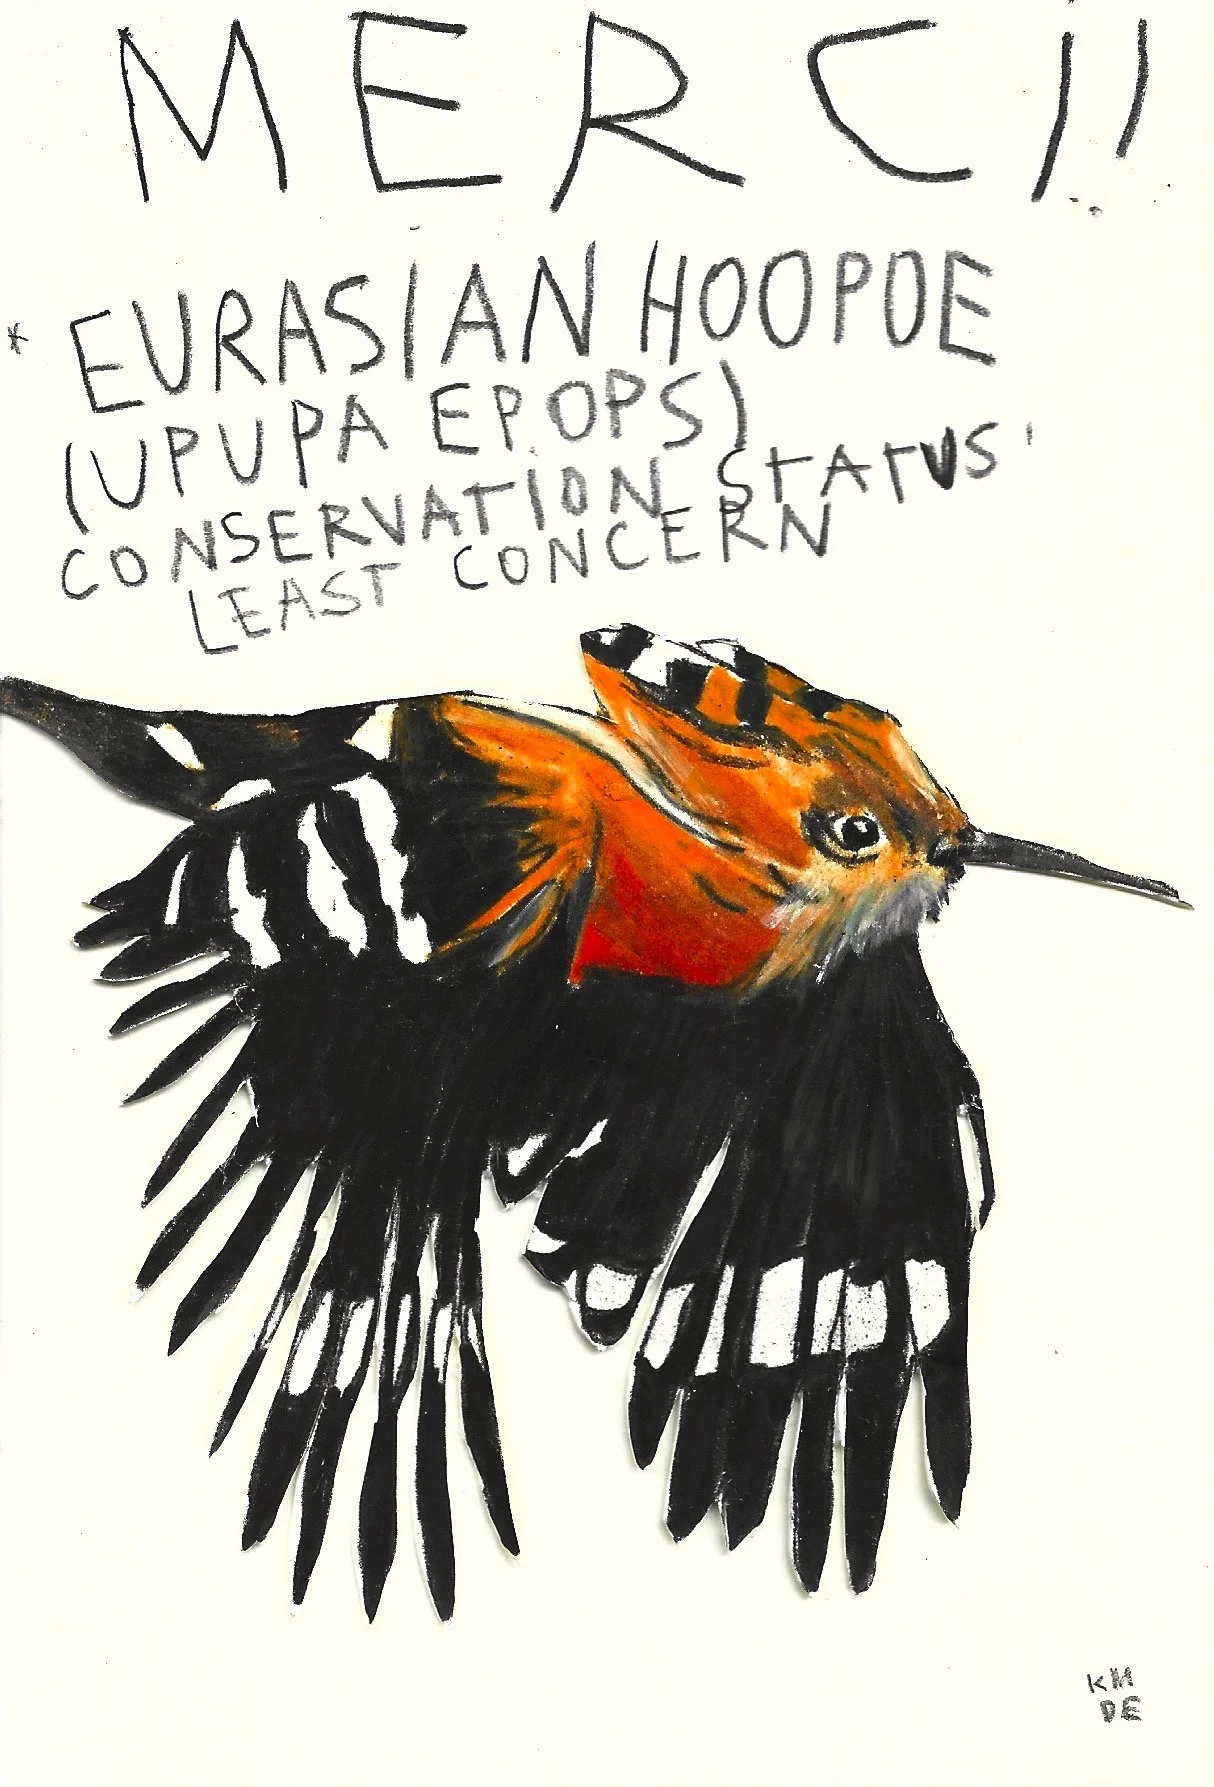 MERCI!
* EURASIAN HOOPOE
(UPUPA EPOPS)
CONSERVATION STATUS'
LEAST CONCERN
KM
DE